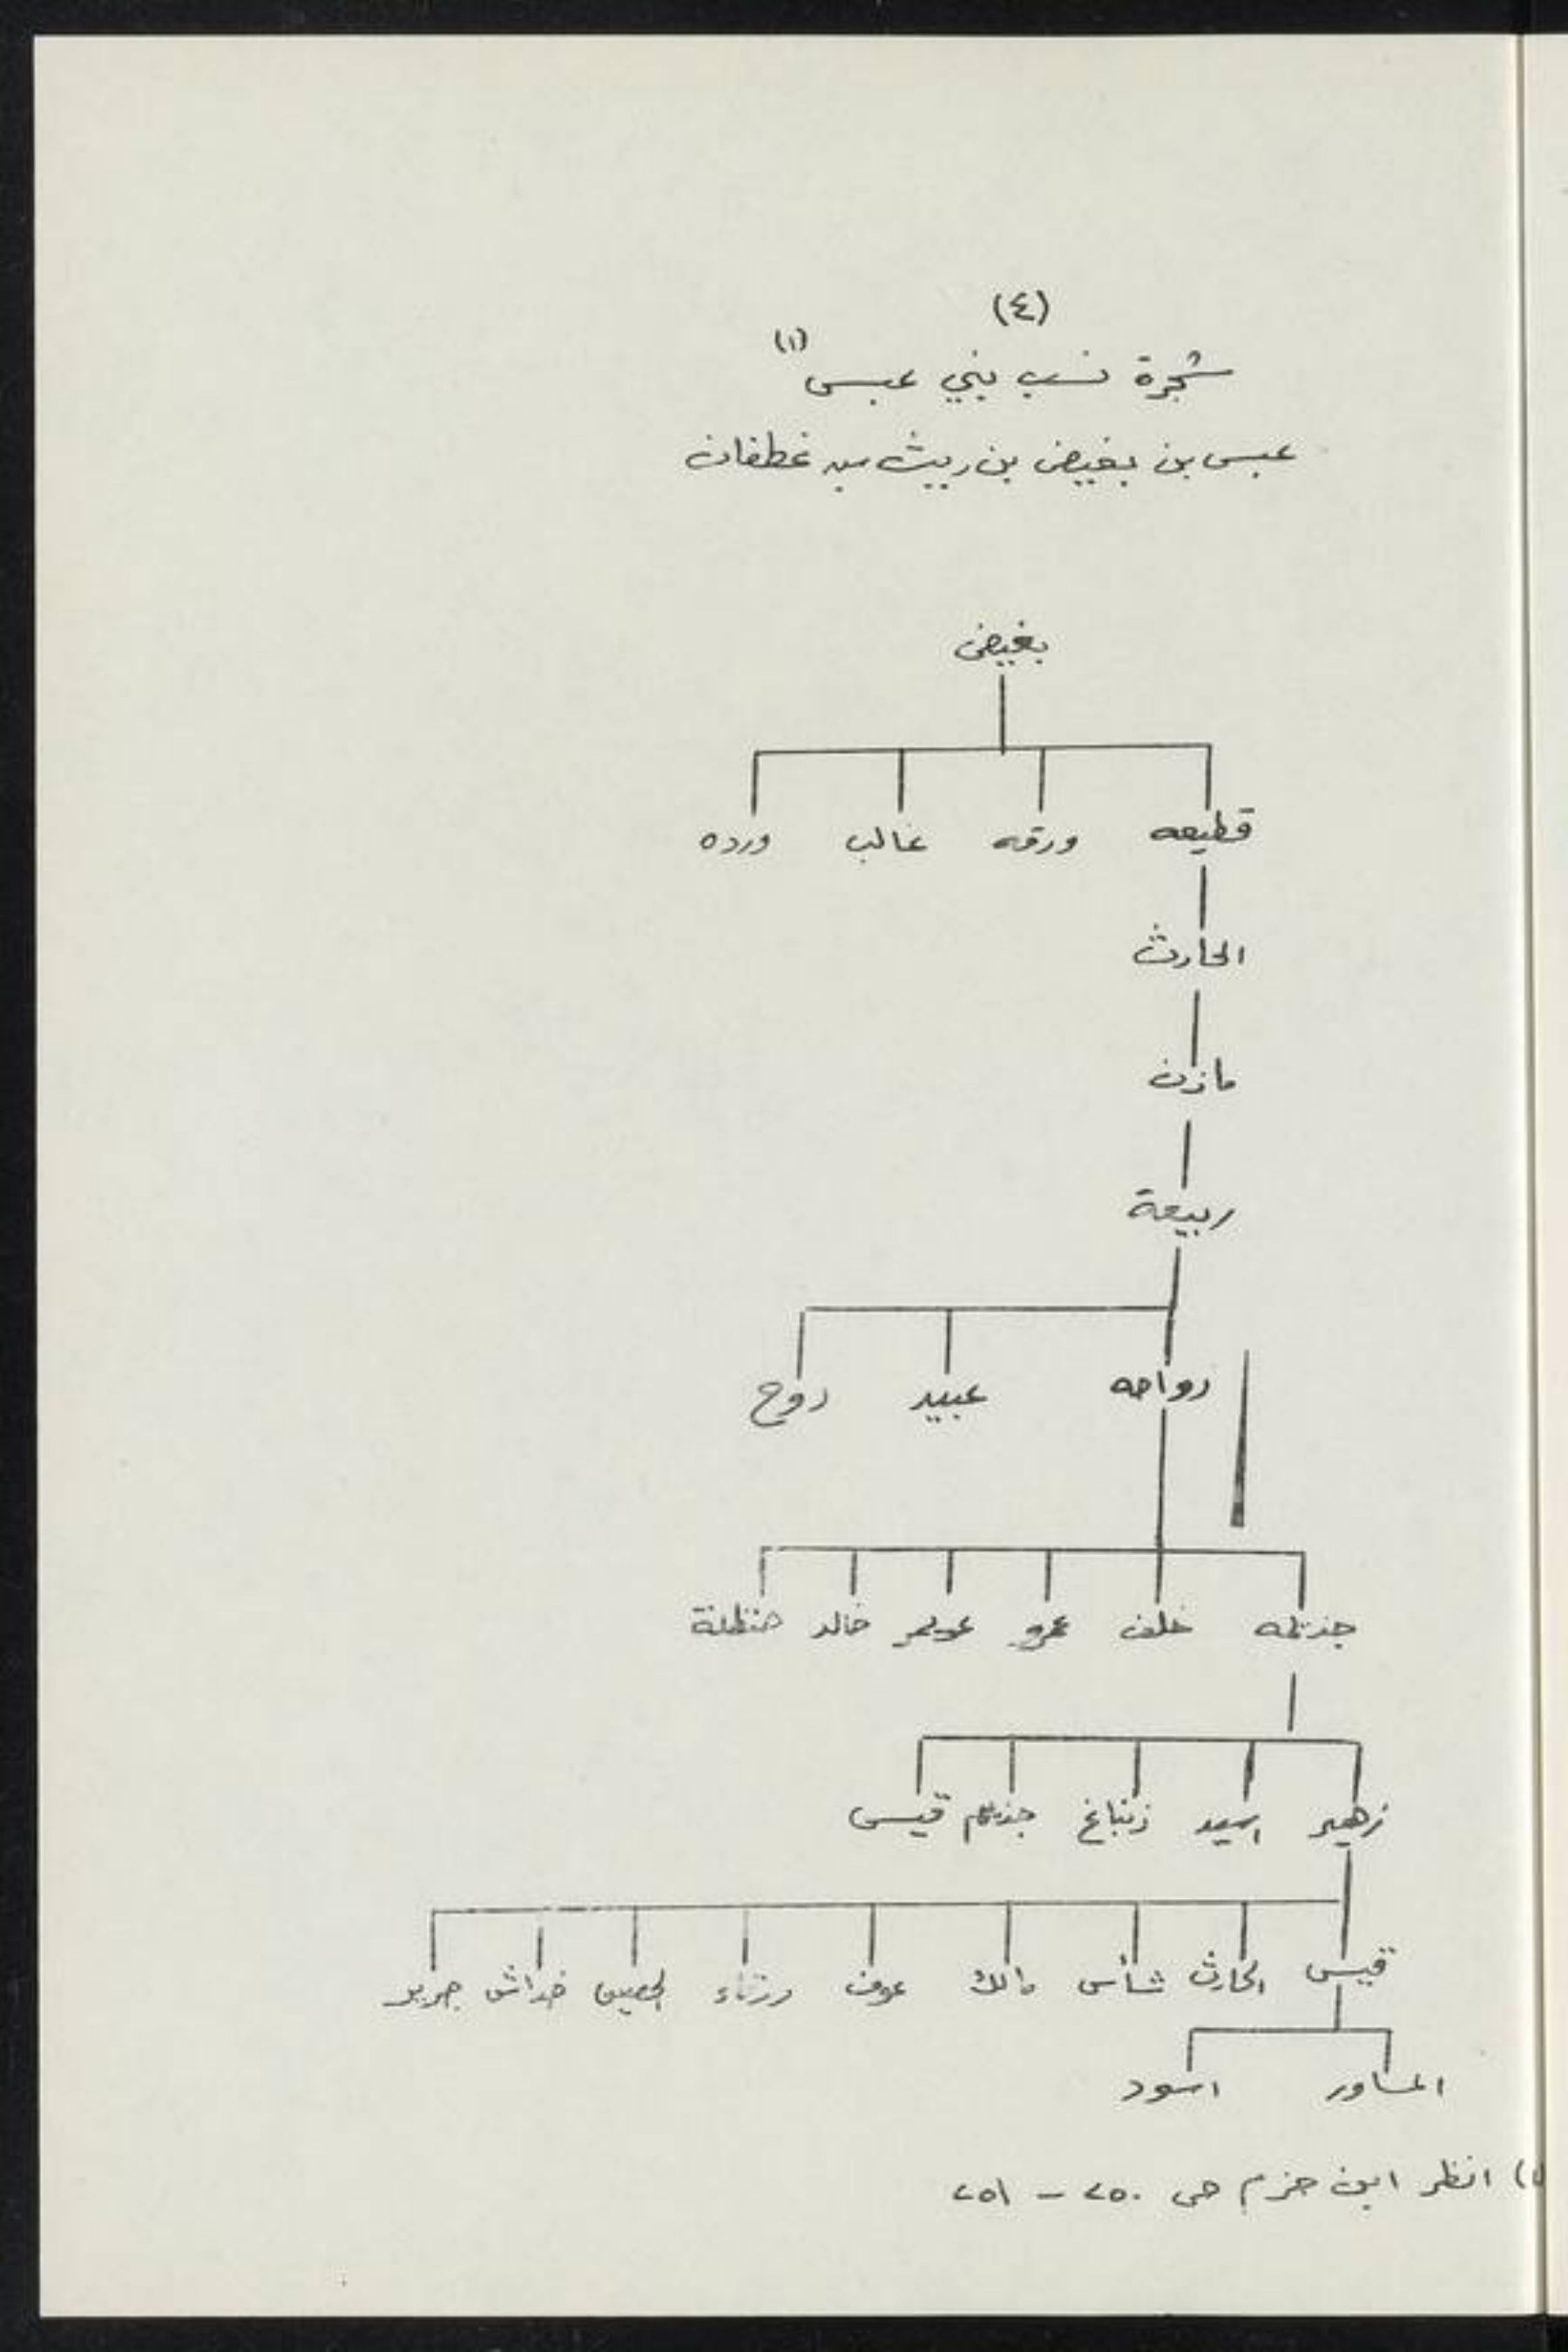 (٤)
شجرة نسب بني عبس (١)
عبس بن بغيض بن ريث بن غطفان
بغيض
قطيعه ورقه غالب ورده
الحارث
مازن
ربيعة
رواحه عبيد روح
جذيمه خلف عمرو عويمر خالد حنظلة
زهير اسيد زنباغ جذيم قيس
قيس الحارث شأس مالك عوف ورقاء الحصين خداش جرير
المساور اسود
(١) انظر ابن حزم ص ٢٥٠ - ٢٥١